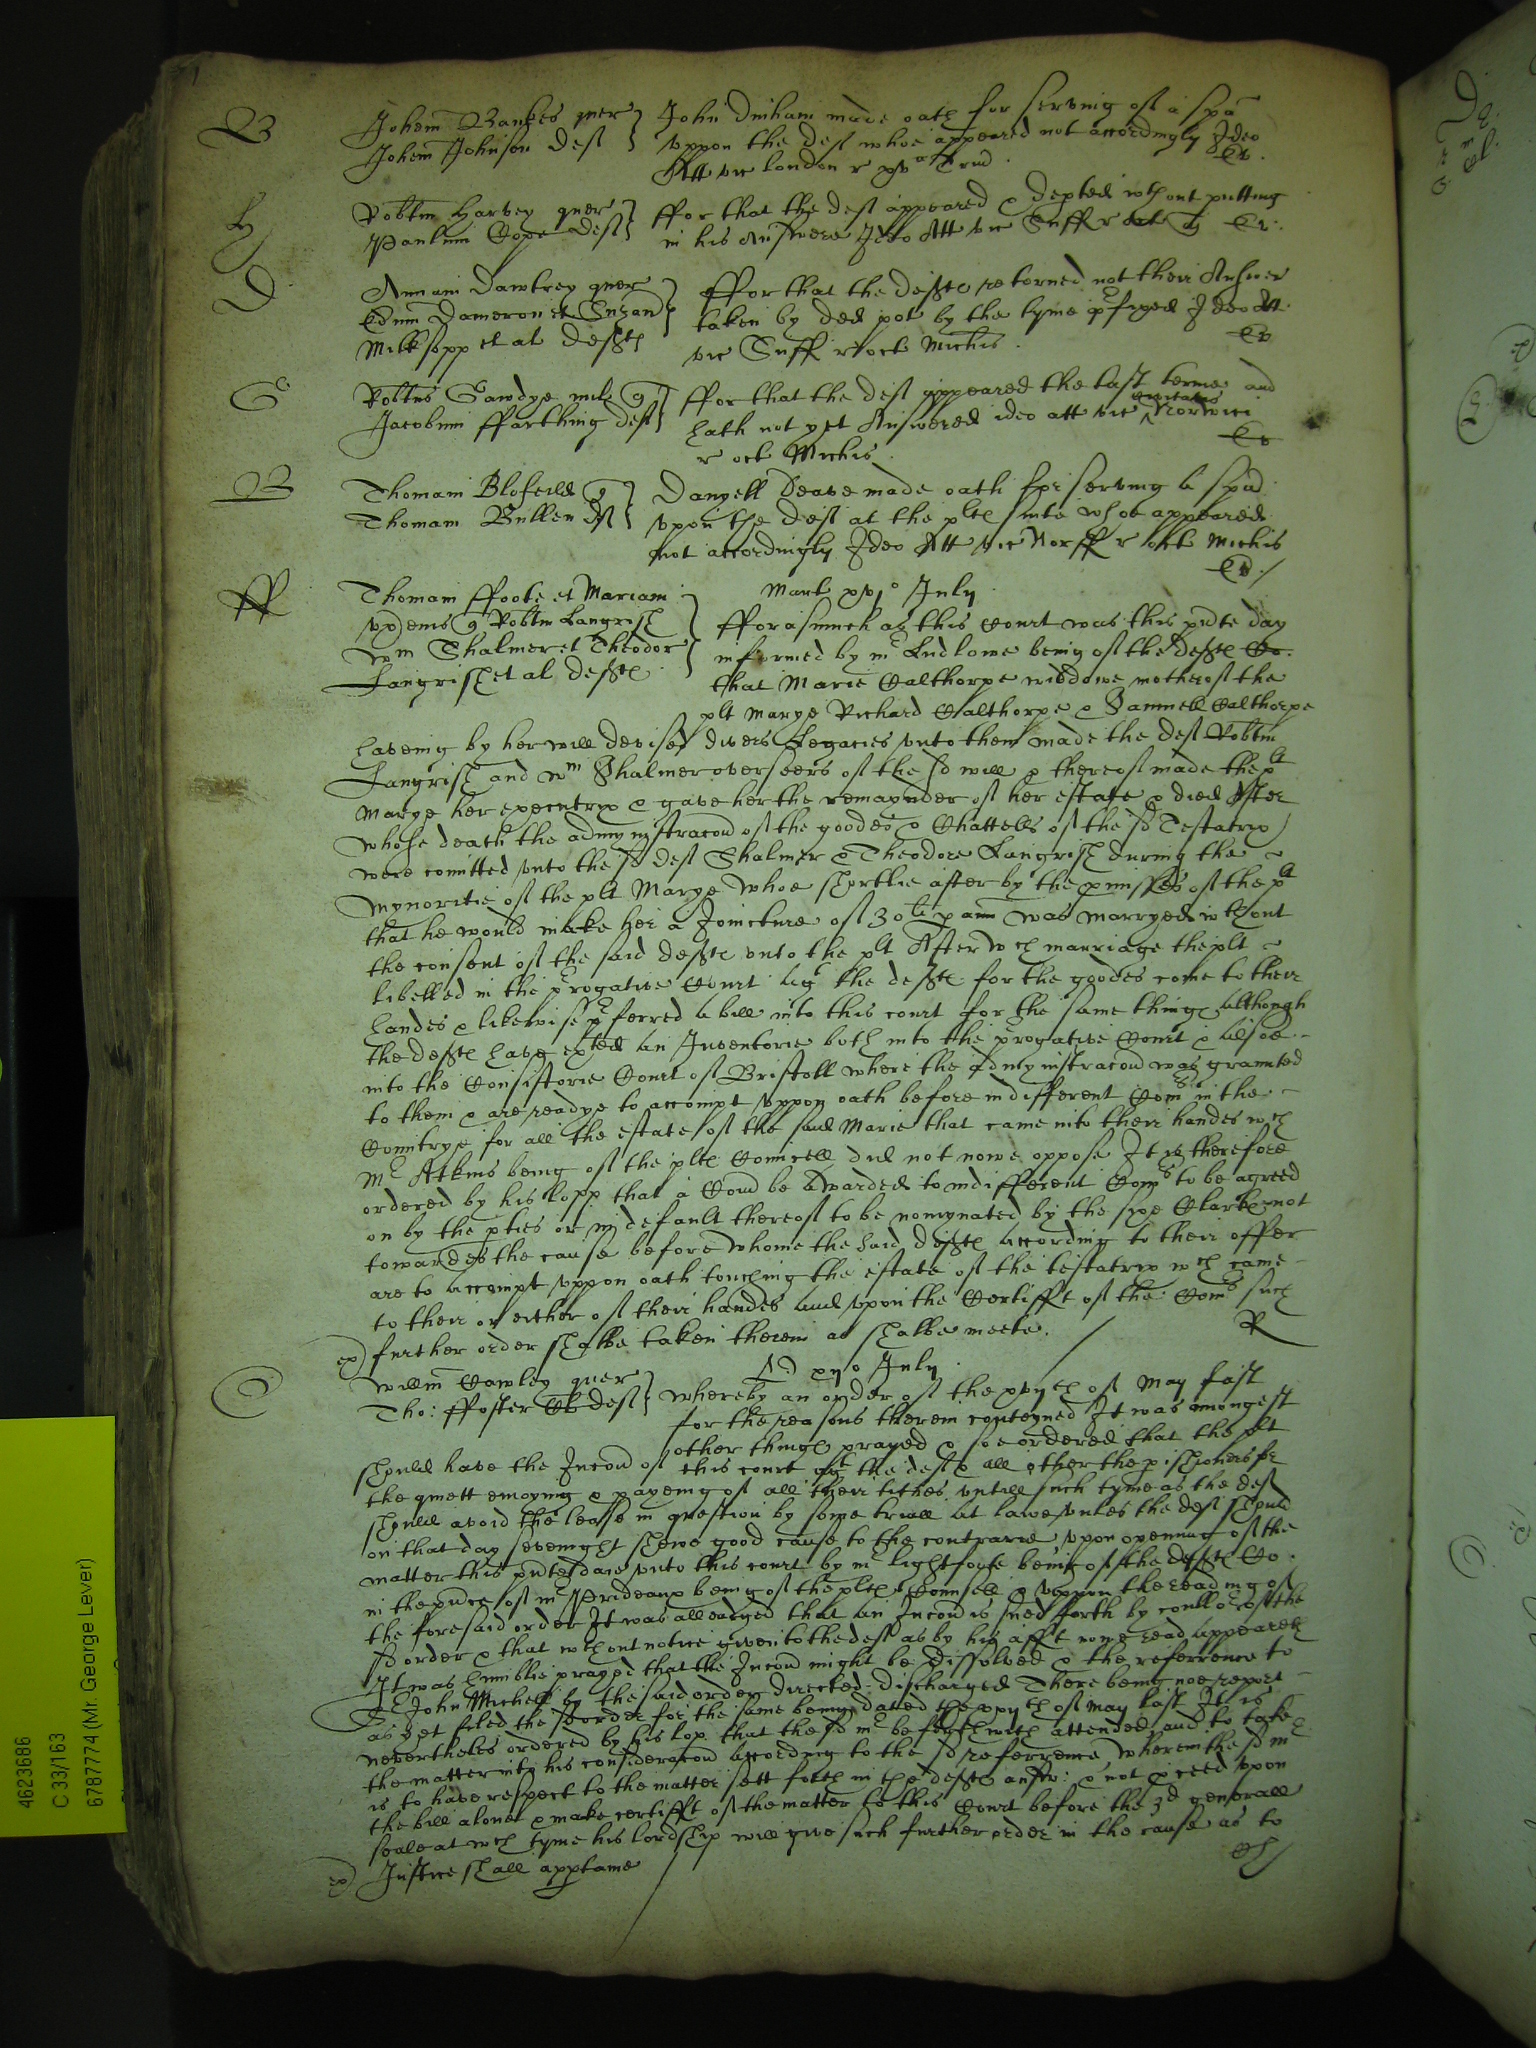 B
Johem Bankes quer
Johem Johnson deft
John Dinham made oath for serving of a spa
uppon the deft whoe appeared not accordingly Ideo
Att vic london r xv Trin
H
Robtm Harvey quer
Paulum Cope deft
ffor that the deft appeared & depted wthout putting
in his Answere Ideo Att vic Suff r
D
Annam Dawtrey quer
Edm Dameron et Suzan
Milksopp et al defts
ffor that the defts retorned not their Answer
taken by ded pot by the tyme pfixed Ideo Att
vic Suff r oct Michis
G
Robtus Gawdye mil q
Jacobum ffarthing deft
ffor that the deft appeared the last terme and
hath not yet Answered ideo att vic civitatis Norwici
r oct Michis
B
Thomam Blofeild q
Thomam Bullen dft
Danyell Deave made oath for serving a spa
upon the deft at the plts suite whoe appeared
not accordingly Ideo Att vic Norff r oct Michis
ff
Thomam ffoote et Mariam
uxem q Robtm Langrish
Wm Shalmer et Theodor
Langrish et al defts
Mart xvjo July
fforasmuch as this Court was this pnte day
informed by mr Ludlowe being of the defts Co.
that Marie Calthorpe widdowe mother of the
plt Marye Richard Calthorpe & Samuell Calthorpe
haveing by her will devised divers Legacies unto them made the deft Robtm
Langrish and Wm Shalmer overseers of the sd will & thereof made the plt
Marye her executrix & gave her the remaynder of her estate & died After
whose death the admynistracon of the goodes & Chattells of the sd Testatrix
were comitted unto the sd deft Shalmer & Theodore Langrish during the
mynoritie of the plt Marye whoe shortlie after by the pmisses of the plt
that he would make her a Joincture of 30li p ann was marryed wthout
the consent of the said defts unto the plt After wch marriage the plt
libelled in the progative Court agt the defts for the goodes come to their
handes & likewise pferred a bill into this court for the same things although
the defts have exted an Inventorie both into the prerogative Court & alsoe
into the Consistorie Court of Bristoll where the admynistracon was graunted
to them & are readye to accompt uppon oath before indifferent Comrs in the
Countrye for all the estate of the said Marie that came into their handes wch
Mr Atkins being of the plts Councell did not nowe oppose It is therefore
ordered by his lopp that a Com be awarded to indifferent Comrs to be agreed
on by the pties or in default thereof to be nomynated by the sixe Clarkes not
towardes the cause before whome the said defts according to their offer
are to accompt uppon oath touching the estate of the testatrix wch came
to their or either of their handes and upon the Certifft of the Comrs such
further order shalbe taken therein as shalbe meete.
R
C
Willm Cowley quer
Tho: ffoster Cler deft
xijo July
whereby an order of the xvijth of May last
for the reasons therein conteyned It was amongest
other things prayed & soe ordered that the plt
should have the Incon of this court agt the deft & all other the pishioners for
the quiett enioying & payeing of all their tithes untill such tyme as the deft
should avoid the lease in question by some triall at lawe unles the deft should
on that day sevenight shewe good cause to the contrarie upon opening of the
matter this pnte daie unto this court by mr lightfoote being of the defts Co.
in the pnce of mr Prideaux being of the plts Counsell & uppon the reading of
the foresaid order It was alleadged that an Incon is sued forth by coullor of the
sd order & that wthout notice given to the deft as by his afft nowe read appeareth
It was humblie prayed that the Incon might be dissolved & the referrence to
Sr John Michell by the said order directed discharged There being noe report
as yet filed the order for the same being dated the xvijth of May last It is
nevertheles ordered by his lop that the sd mr be forthwith attended and to take
the matter into his consideracon according to the sd referrence wherein the sd mr
is to have respect to the matter sett forth in the defts answ: & not pceed upon
the bill alone & make certifft of the matter to this Court before the 3d generall
seale at wch tyme his lordship will give such further order in the cause as to
Justice shall apptaine
4623686
C 33/163
6787774 (Mr. George Lever)